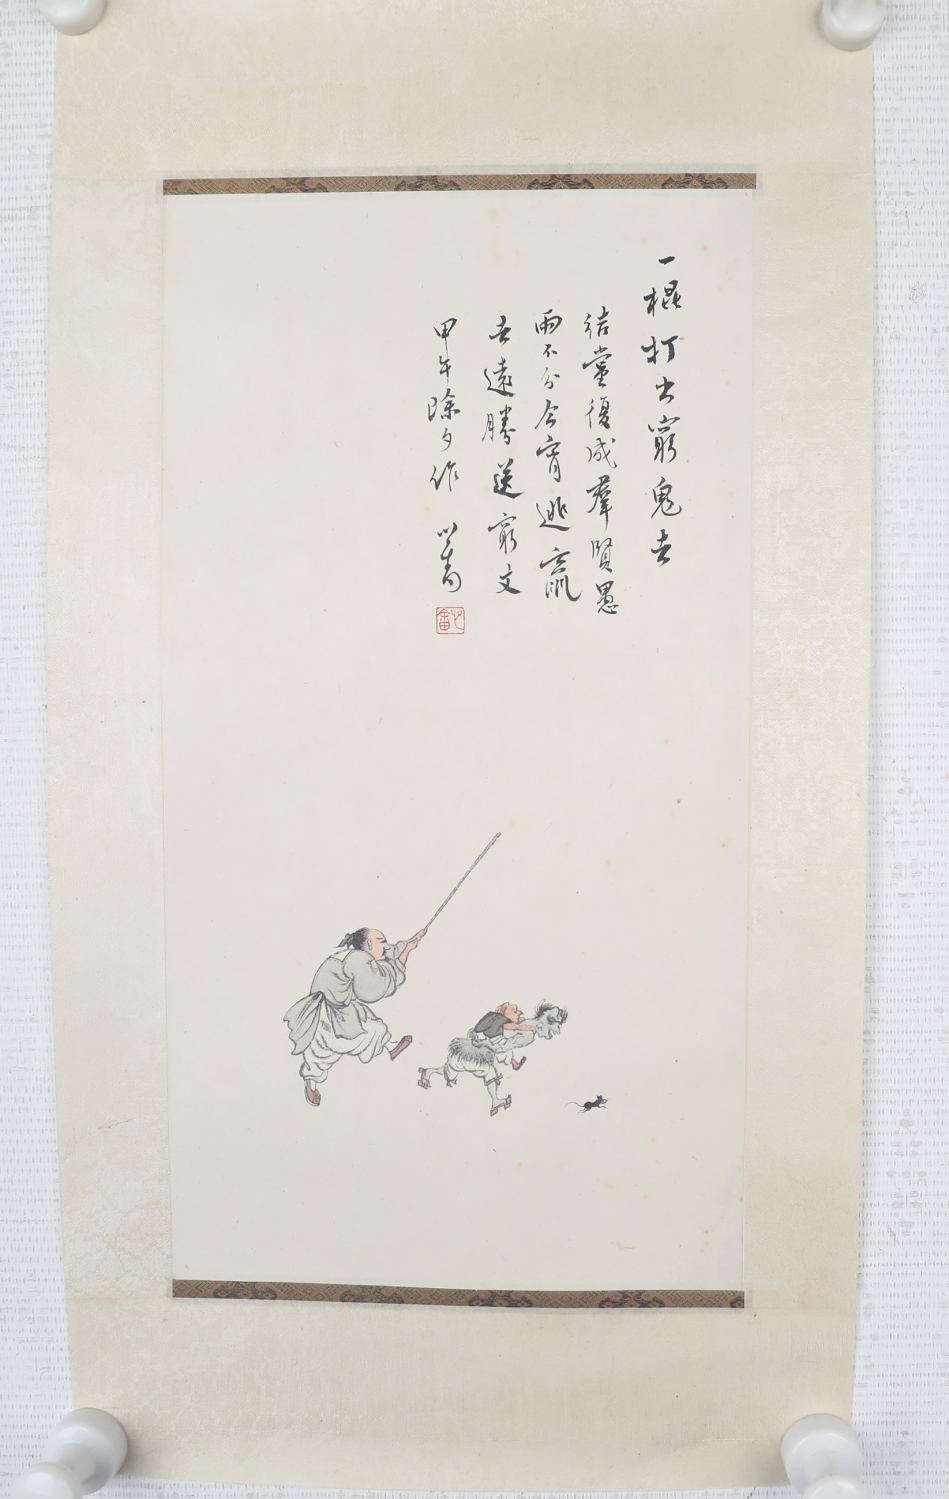 一棍打出窮鬼去
結黨復成羣賢愚
兩不分今宵逃竄
去遠勝送窮文
甲午除夕作 心畬
心畬